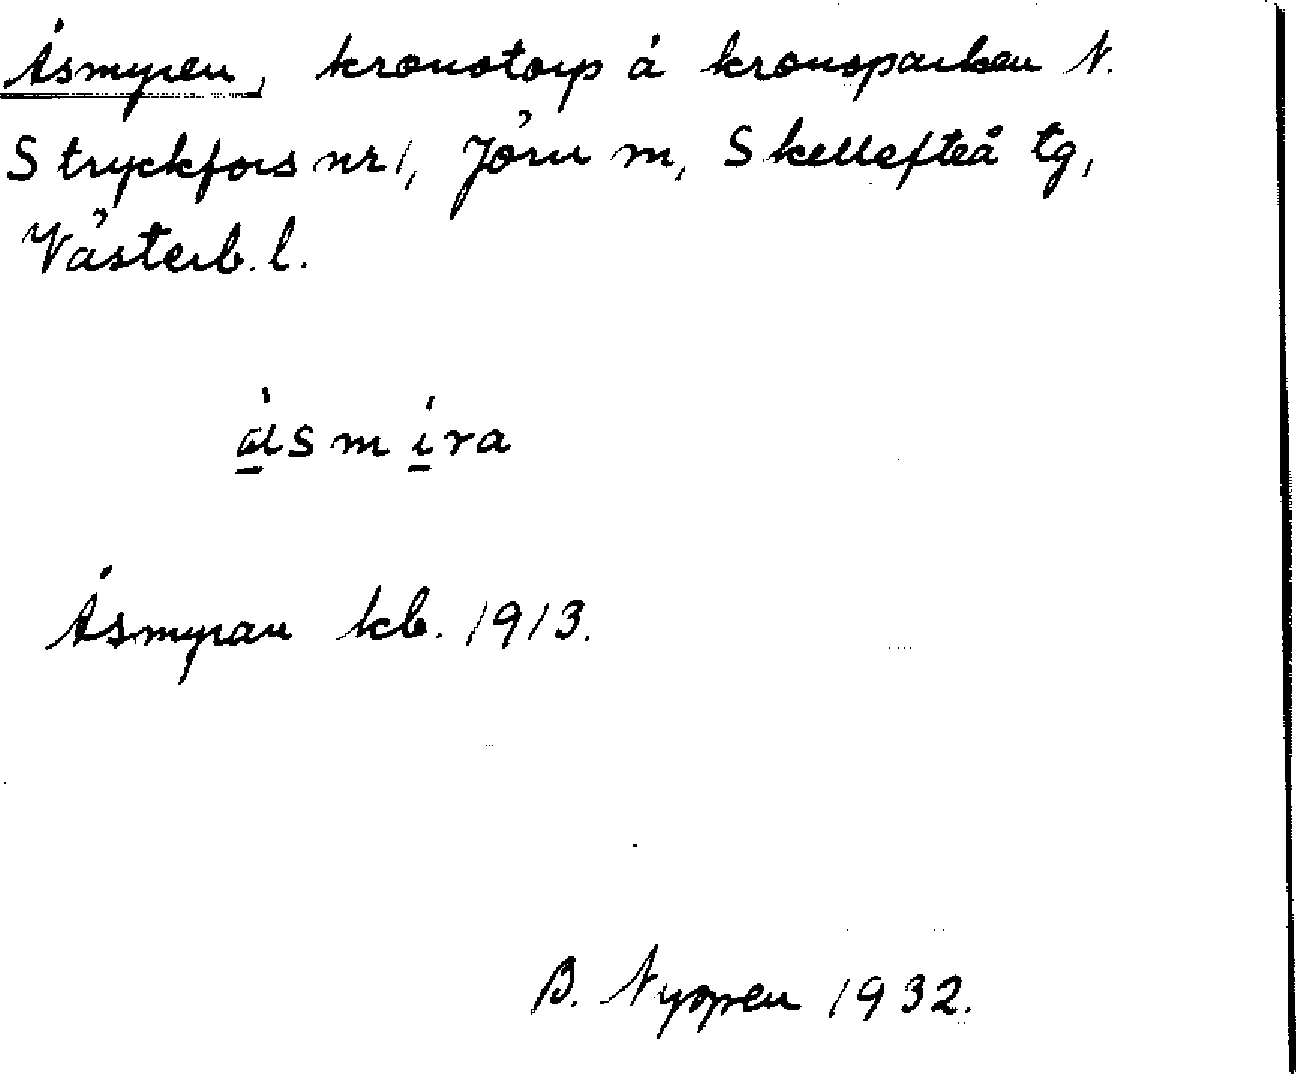 Åsmyren, kronotorp å kronoparken N.
Stryckfors nr 1, Jörn m, Skellefteå tg,
Västerb. l.
ås m íra
Åsmyran kb. 1913.
B. Nyspen 1932.